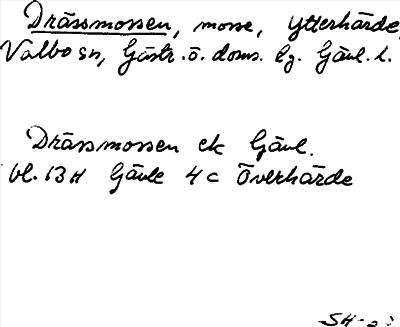 Drässmossen, mosse, Ytterhärde,
Valbo sn, Gästr. ö. doms. lg. Gävl. l.
Drässmossen ek Gävl.
bl. 13H Gävle 4c Överhärde
SH-